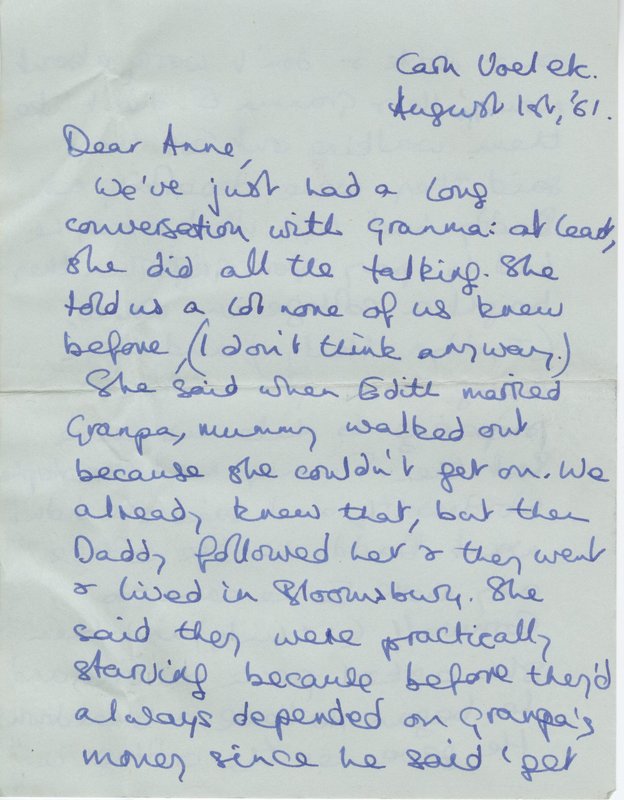 Carn Voel etc.
August 1st, '61.
Dear Anne,
We've just had a long
conversation with Granma: at least,
she did all the talking. She
told us a lot none of us knew
before, (I don't think anyway.)
She said when Edith married
Granpa, mummy walked out
because she couldn't get on. We
already knew that, but then
Daddy followed her & they went
& lived in Bloomsbury. She
said they were practically
starving because before they'd
always depended on Granpa's
money since he said 'get